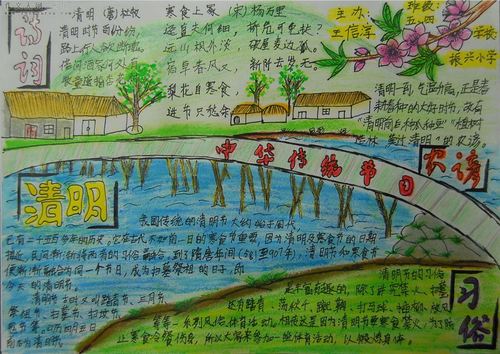 诗词
清明（唐）杜牧
清明时节雨纷纷
路上行人欲断魂
借问酒家何处有
牧童遥指杏花
寒食上冢（宋）杨万里
迳直夫何细，桥危可免扶？
远山枫外淡，破屋麦边孤。
宿草春风又，新阡去岁无。
梨花自寒食，
进节只愁余
主办：
王信淳
班级：
五、四
学校：
振兴小学
清明一到，气温升高，正是春
耕春种的大好时节，故有
“清明前后种瓜种豆”“植树
造林，莫过清明”的农谚。
农谚
中华传统节日
清明
我国传统的清明节大约始于周代
已有二千五百多年的历史。它在古代不如前一日的寒食节重要，因为清明及寒食节的日期
接近，民间渐渐将两者的习俗融合，到了隋唐年间（581至907年），清明节和寒食节
便渐渐融合为同一个节日，成为扫墓祭祖的日子，即
今天的清明节。
清明节古时又叫踏青节、三月节、
祭祖节、扫墓节、扫坟节、
习俗
清明节的习俗
是丰富有趣的，除了讲究禁火、扫墓，
还有踏青、荡秋千、蹴鞠、打马球、插柳
等一系列风俗体育活动。相传这是因为清明节要寒食禁火，为了防
止寒食冷餐伤身，所以大家来参加一些体育活动，以锻炼身体。